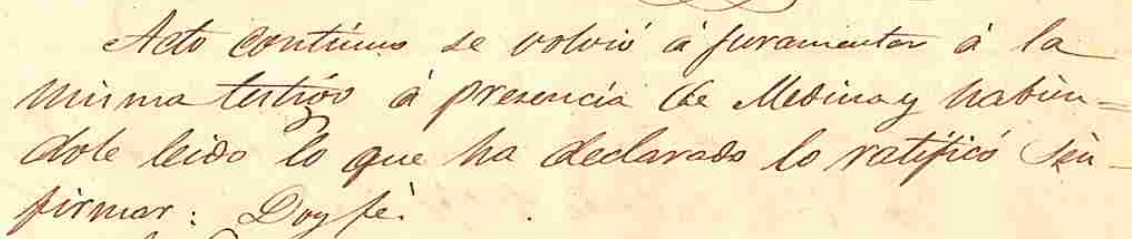 Acto contínuo se volvió á juramentar á la
misma testigo á presencia de Medina y habien=
dole leido lo que ha declarado lo ratificó sin
firmar: Doy fé.